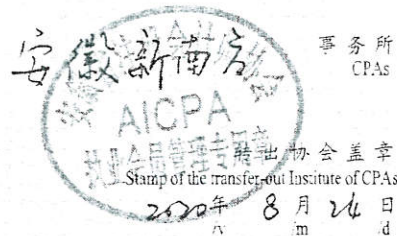 安徽新南方
事务所
CPAs
AICPA
执业会员管理专用章
转出协会盖章
Stamp of the transfer-out Institute of CPAs
2020年 8月 26日
/y /m /d